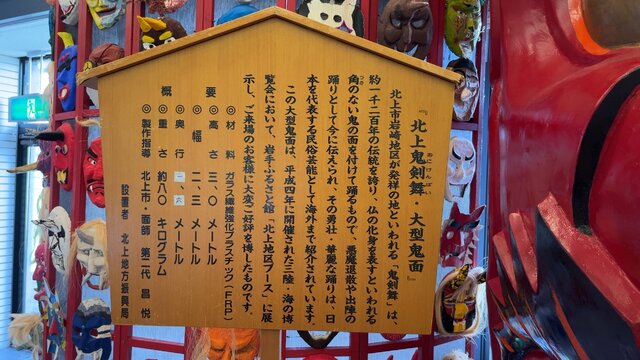 『北上鬼剣舞・大型鬼面』
おにけんばい
北上市岩崎地区が発祥の地といわれる「鬼剣舞」は、
約一千二百年の伝統を誇り、仏の化身を表すといわれる
角のない鬼の面を付けて踊るもので、悪魔退散や出陣の
つの
踊りとして今に伝えられ、その勇壮・華麗な踊りは、日
本を代表する民俗芸能として海外まで紹介されています。
この大型鬼面は、平成四年に開催された三陸・海の博
覧会において、岩手ふるさと館「北上地区ブース」に展
示し、ご来場のお客様に大変ご好評を博したものです。
◎材料 ガラス繊維強化プラスチック(FRP)
概要
◎高さ 三、〇メートル
◎幅 二、三メートル
◎奥行 一、六メートル
◎重さ 約八〇キログラム
◎製作指導 北上市・面師 第二代 昌悦
設置者 北上地方振興局